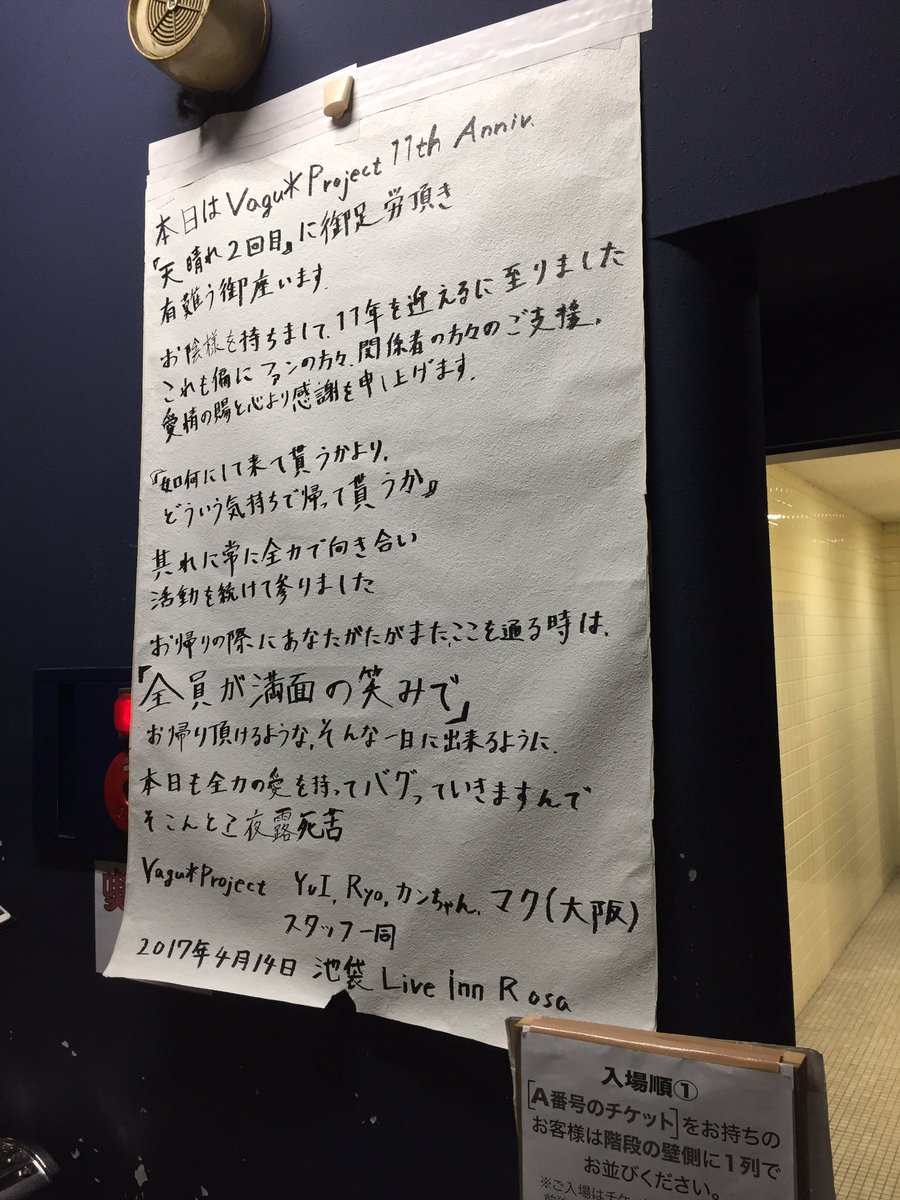 本日はVagu*Project 11th Anniv.
『天晴れ2回目』に御足労頂き
有難う御座います.
お陰様を持ちまして、11年を迎えるに至りました
これも偏にファンの方々、関係者の方々のご支援、
愛情の賜と心より感謝を申し上げます.
『如何にして来て貰うかより、
どういう気持ちで帰って貰うか』
其れに常に全力で向き合い
活動を続けて参りました
お帰りの際にあなたがたがまたここを通る時は、
「全員が満面の笑みで」
お帰り頂けるような、そんな一日に出来るように、
本日も全力の愛を持ってバグっていきますんで
そこんとこ夜露死苦
Vagu*Project YuI, Ryo, カンちゃん、マク(大阪)
スタッフ一同
2017年4月14日 池袋 Live inn Rosa
入場順①
[A番号のチケット]をお持ちの
お客様は階段の壁側に1列で
お並びください。
※ご入場はチケ